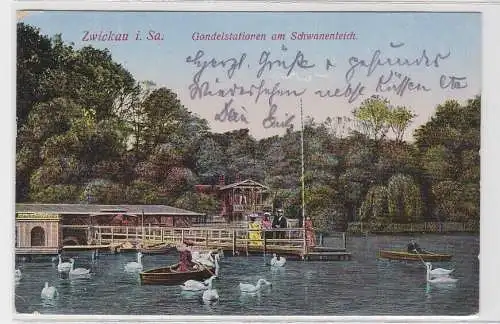 Zwickau i. Sa. Gondelstationen am Schwanenteich.
Herzl. Grüße + gesundes
Wiedersehen nebst Küssen etc
Dein